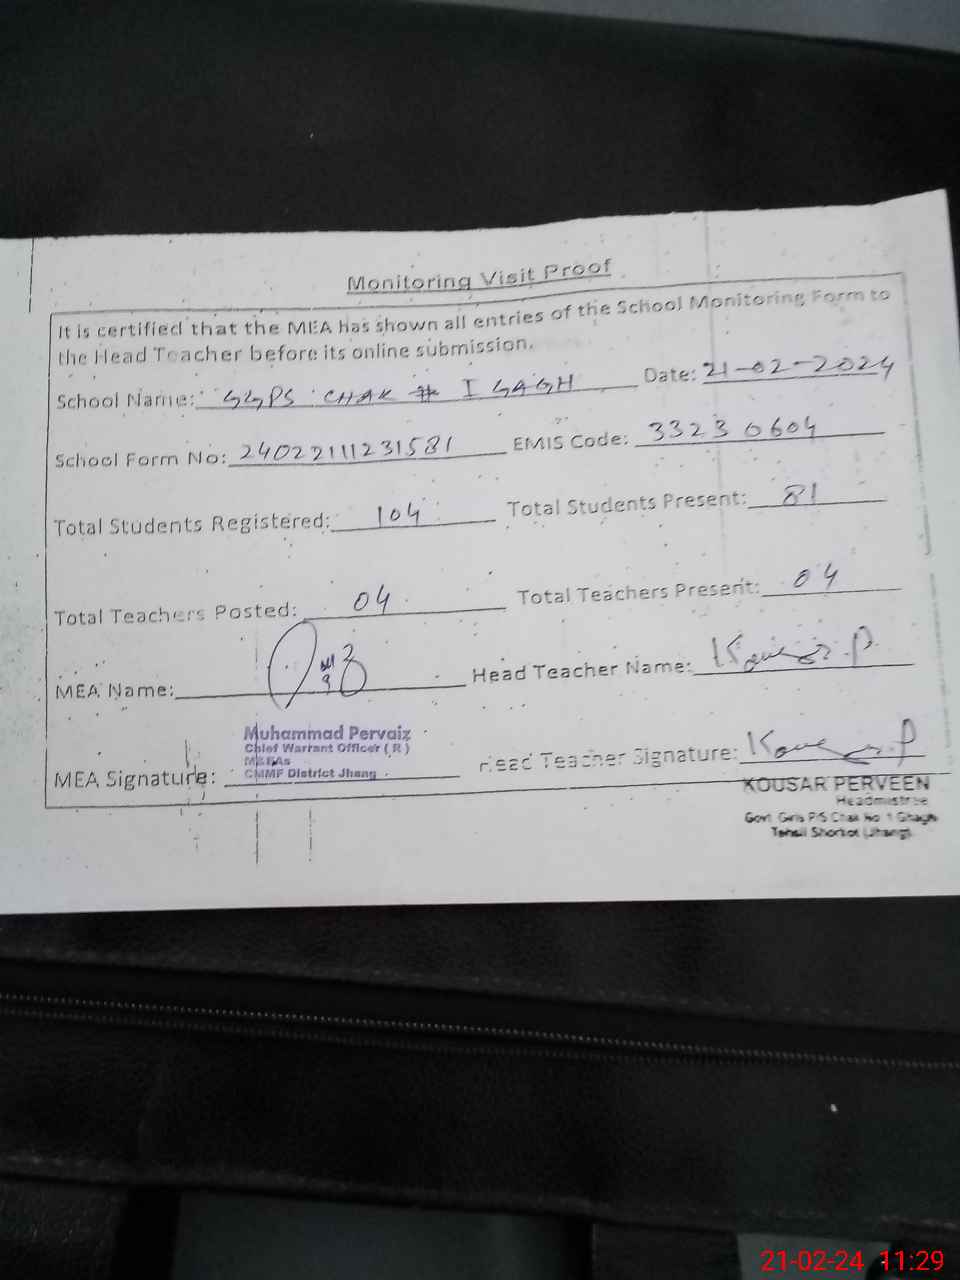 Monitoring Visit Proof
It is certified that the MEA has shown all entries of the School Monitoring Form to
the Head Teacher before its online submission.
School Name: GGPS CHAK # I GAGH Date: 21-02-2024
School Form No: 24022111231581 EMIS Code: 33230604
Total Students Registered: 104 Total Students Present: 81
Total Teachers Posted: 04 Total Teachers Present: 04
MEA Name: Head Teacher Name: Kousar.P
Muhammad Pervaiz
Chief Warrant Officer ( R )
M&EAs
CMMF District Jhang
MEA Signature: Head Teacher Signature: Kousar.P
KOUSAR PERVEEN
Headmistree
Govt Girls P/S Chak No 1 Ghagh
Tehsil Shorkot (Jhang)
21-02-24 11:29